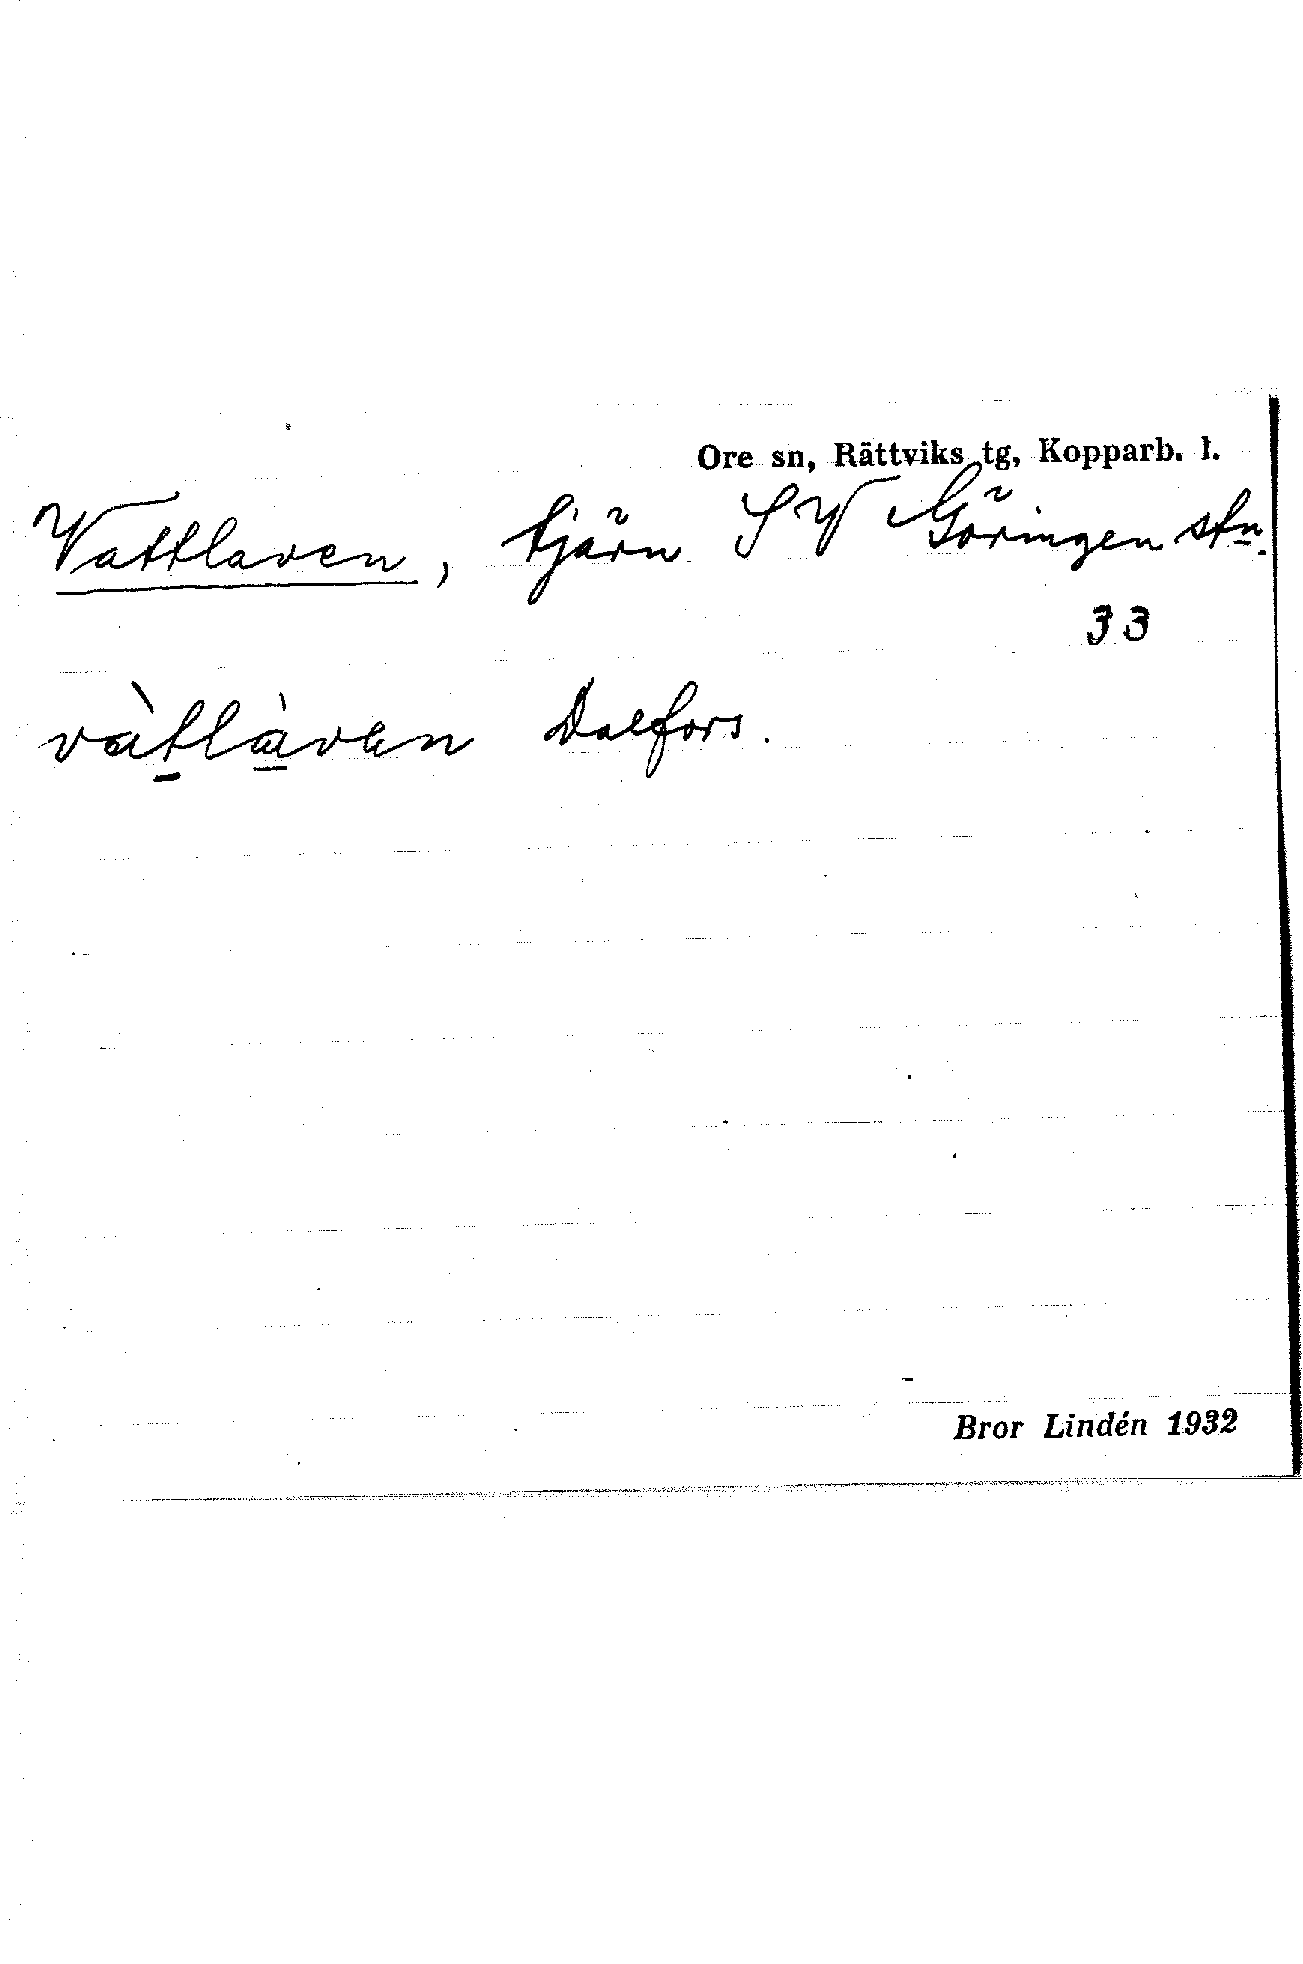 Ore sn, Rättviks tg, Kopparb. l.
Vattlaven, tjärn SV Göringen stn.
33
vàtlàven Dalfors.
Bror Lindén 1932